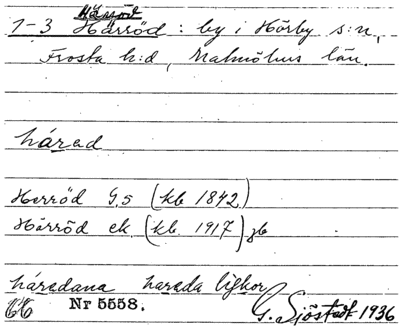 Härröd
1-3 Härröd : by i Hörby s:n,
Frosta h:d, Malmöhus län.
hárad
Herröd G.s (kb 1842)
Härröd ek. (kb. 1917) gb
háradana harada ligkor
Nr 5558. G. Sjöstedt 1936